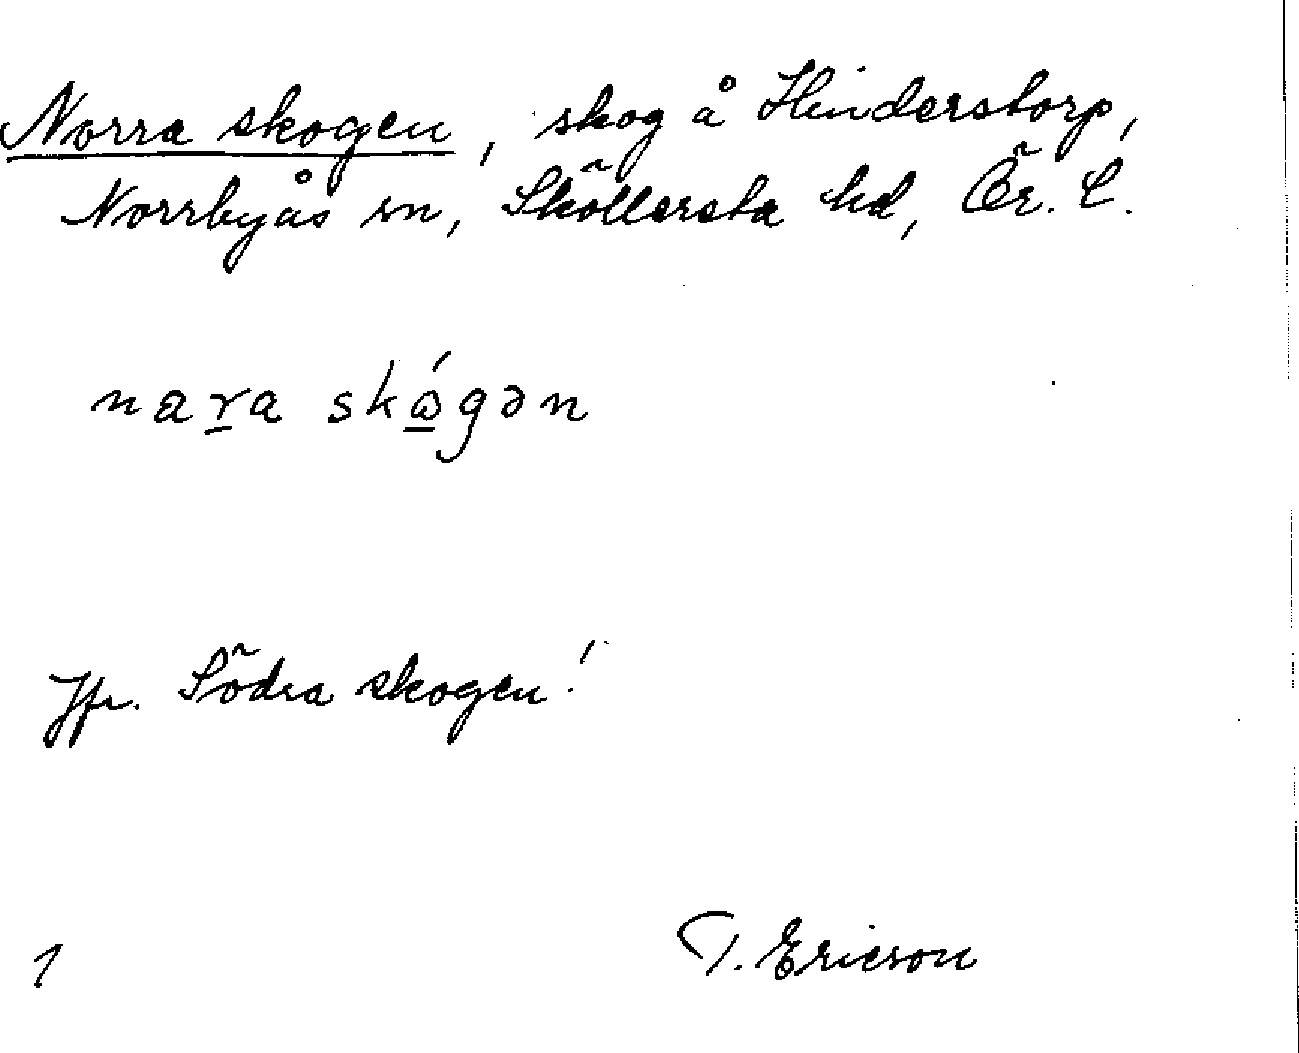 Norra skogen, skog å Hinderstorp,
Norrbyås sn, Sköllersta hd, Ör. L.
nar̲a skɷ̲́gən
Jfr. Södra skogen!
1
T. Ericson